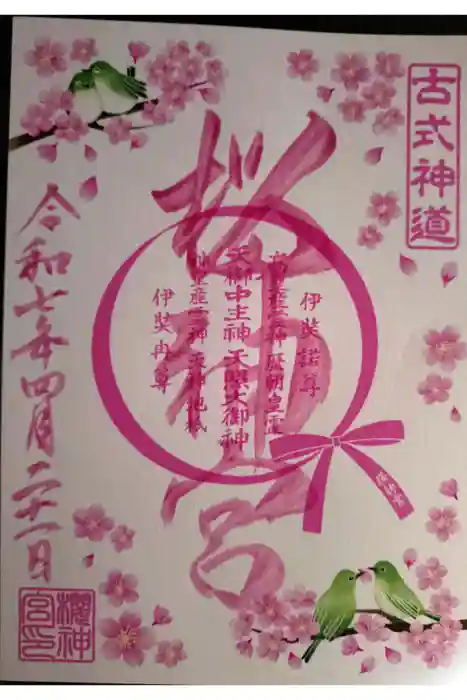 古式神道
桜神宮
伊奘諾尊
高皇産霊神 歴朝皇霊
天御中主神 天照大御神
神皇産霊神 天神地祇
伊奘冉尊
桜神宮
令和七年四月二十一日
櫻神宮印